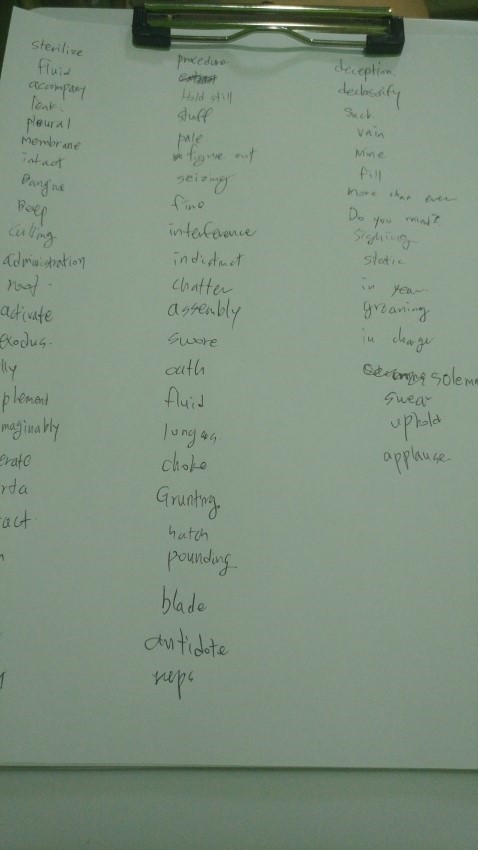 sterilize
fluid
accompany
leak.
ploural
Membrane
intact
Pangue
Beep
Culling
administration
roof.
activate
exodus.
lly
plement
maginably
erate
rda
act.
procedure
Hold still
stuff
pale
figure out
seizing
fine
interference
indistinct
chatter
assembly
swore
oath
fluid
lungs.
choke
Grunting
hatch
pounding
blade
antidote
deception.
declassify
Suck.
vain
Mine
fill
more than ever
Do you mind?
Sighing
static
in year
groaning
in charge
solemn
swear
uphold
applause.